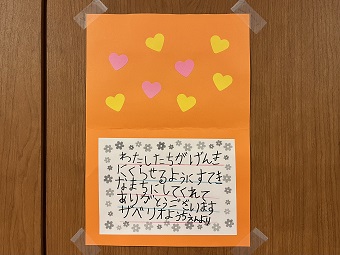 わたしたちがげんき
にくらせるようにすてき
なまちにしてくれて
ありがとうございます
ザベリオようちえんより